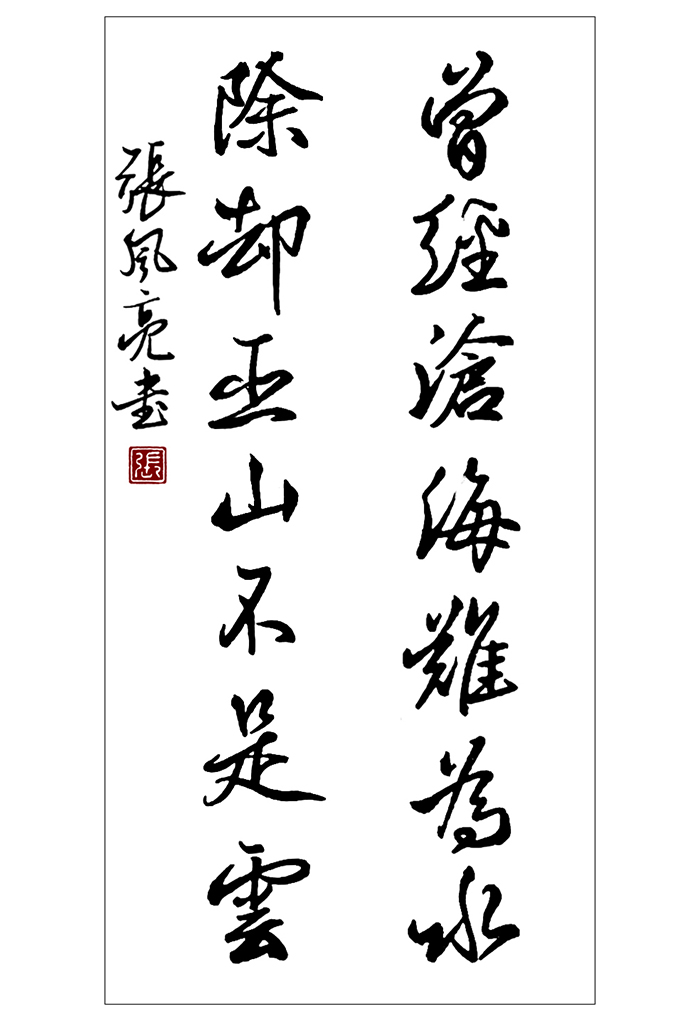 曾經滄海難為水
除却巫山不是雲
張風亮書
張